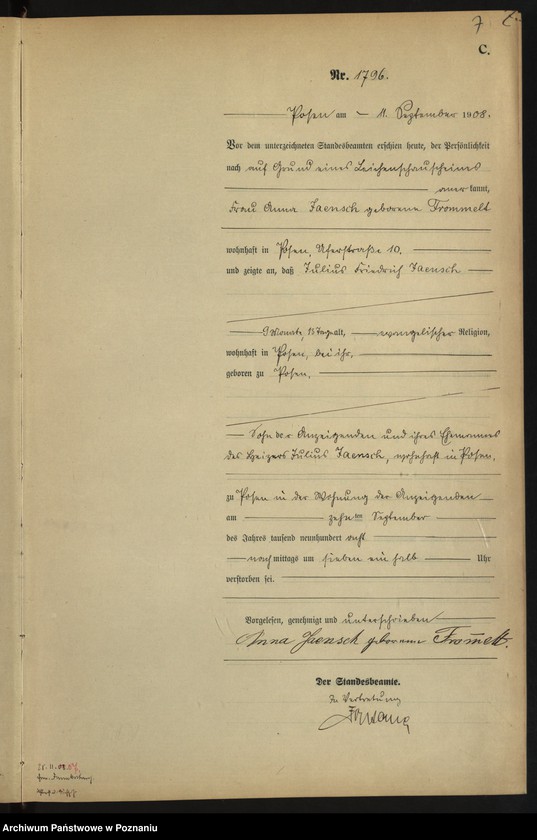 7
C.
Nr. 1796.
Posen am 11. September 1908.
Vor dem unterzeichneten Standesbeamten erschien heute, der Persönlichkeit
nach auf Grund eines Leichenschauscheins
anerkannt,
Frau Anna Jaensch geborene Frommelt
wohnhaft in Posen, Uferstraße 10.
und zeigte an, daß Julius Friedrich Jaensch
9 Monate, 13 Tage alt, evangelischer Religion,
wohnhaft in Posen, bei ihr,
geboren zu Posen,
Sohn der Anzeigenden und ihres Ehemannes
des Heizers Julius Jaensch, wohnhaft in Posen,
zu Posen in der Wohnung der Anzeigenden
am zehnten September
des Jahres tausend neunhundert acht
nachmittags um sieben ein halb Uhr
verstorben sei.
Vorgelesen, genehmigt und unterschrieben
Anna Jaensch geborene Frommelt.
Der Standesbeamte.
In Vertretung
Archiwum Państwowe w Poznaniu